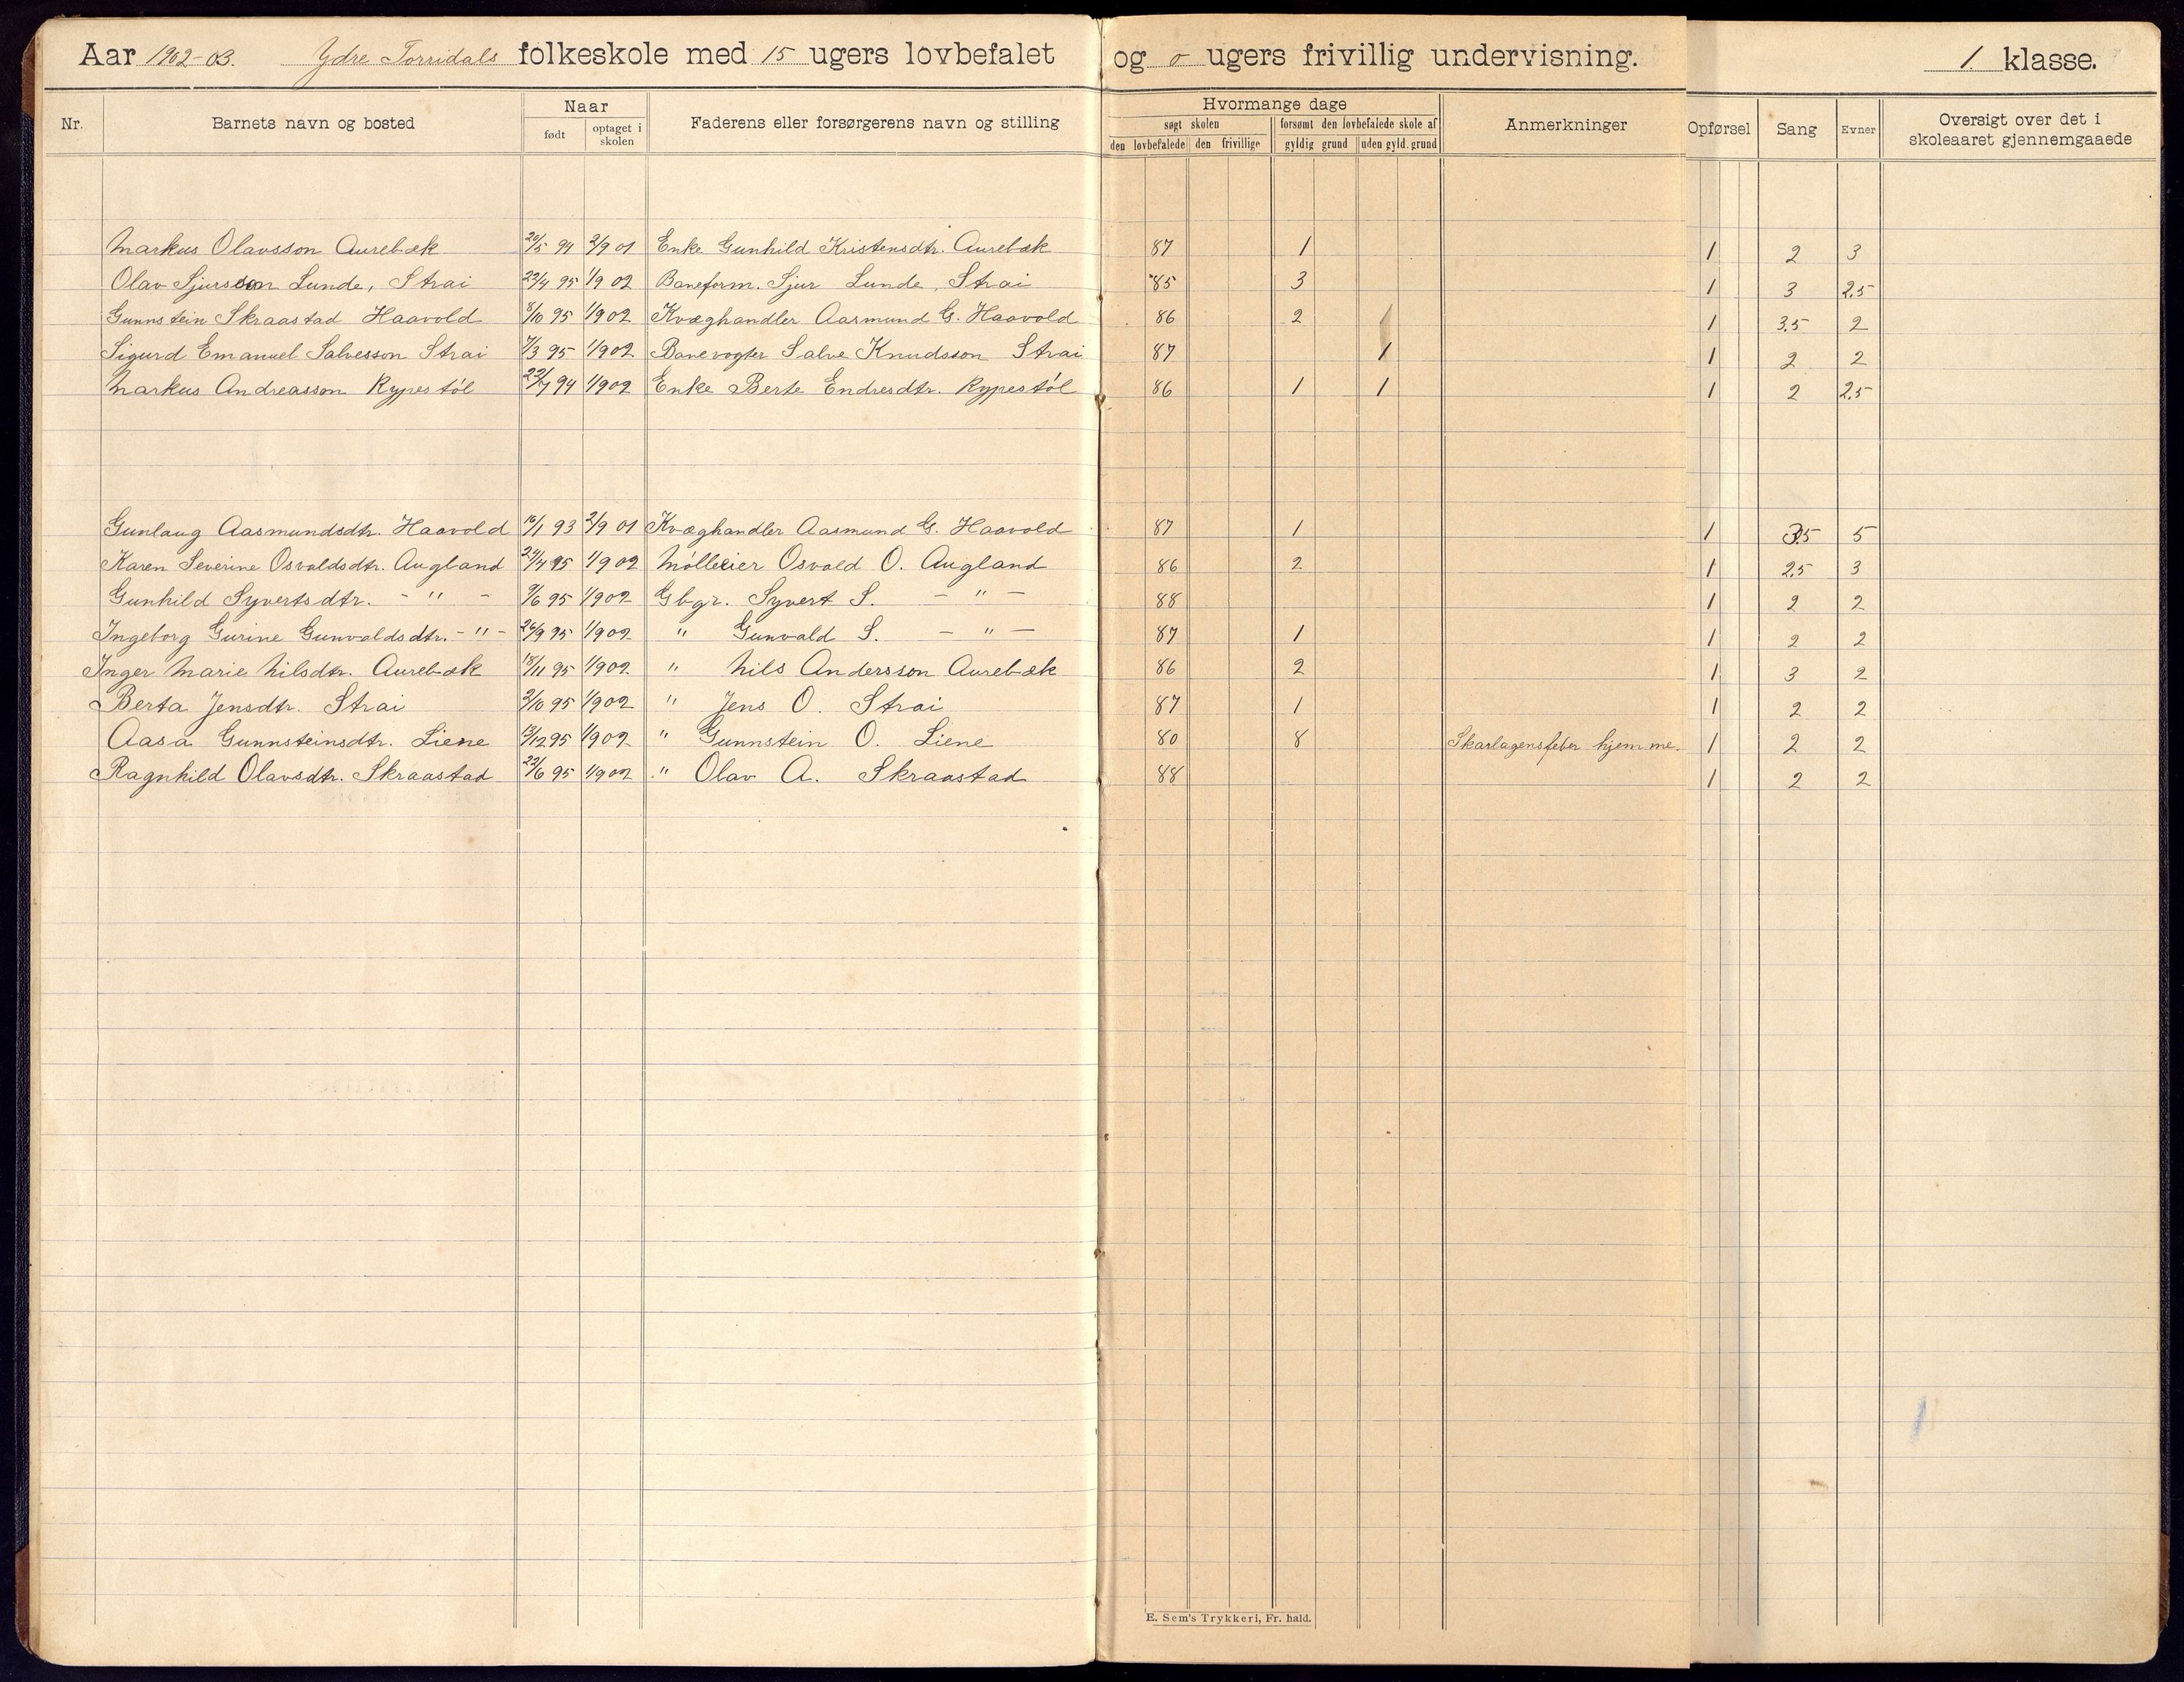 Aar 1902-03. Ydre Torridals folkeskole med 15 ugers lovbefalet og 0 ugers frivillig undervisning. 1. klasse.
Nr. Barnets navn og bosted Naar født optaget i skolen Faderens eller forsørgerens navn og stilling Hvormange dage søgt skolen den lovbefalede den frivillige forsømt den lovbefalede skole af gyldig grund uden gyld. grund Anmerkninger Opførsel Sang Evner Oversigt over det i skoleaaret gjennemgaaede
Markus Olavsson Aurebæk 20/5 94 2/9 01 Enke Gunhild Kristensdtr. Aurebæk 87 1 1 2 3
Olav Sjursson Lunde, Strai 23/4 95 1/9 02 Baneform. Sjur Lunde, Strai 85 3 1 3 2,5
Gunnstein Skraastad Haavold 8/10 95 1/9 02 Kvæghandler Aasmund G. Haavold 86 2 1 3,5 2
Sigurd Emanuel Salvesson Strai 7/3 95 1/9 02 Banevogter Salve Knudsson Strai 87 1 1 2 2
Markus Andreasson Rypestöl 22/7 94 1/9 02 Enke Berte Endresdtr. Rypestöl 86 1 1 1 2 2,5
Gunlaug Aasmundsdtr. Haavold 16/1 93 2/9 01 Kvæghandler Aasmund G. Haavold 87 1 1 3,5 5
Karen Severine Osvaldsdtr. Augland 24/4 95 1/9 02 Mölleeier Osvald O. Augland 86 2 1 2,5 3
Gunhild Syvertsdtr. - " - 9/6 95 1/9 02 Gbgr. Syvert S. - " - 88 1 2 2
Ingeborg Gurine Gunvaldsdtr. - " - 26/9 95 1/9 02 " Gunvald S. - " - 87 1 1 2 2
Inger Marie Nilsdtr. Aurebæk 18/11 95 1/9 02 " Nils Andersson Aurebæk 86 2 1 3 2
Berta Jensdtr. Strai 2/10 95 1/9 02 " Jens O. Strai 87 1 1 2 2
Aasa Gunnsteinsdtr. Liene 13/12 95 1/9 02 " Gunnstein O. Liene 80 8 Skarlagensfeber hjemme. 1 2 2
Ragnhild Olavsdtr. Skraastad 22/6 95 1/9 02 " Olav A. Skraastad 88 1 2 2
E. Sem's Trykkeri, Fr. hald.